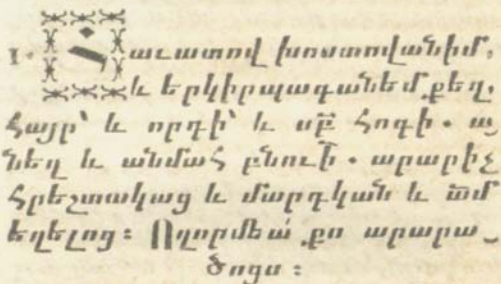 1. Հաւատով խոստովանիմ,
և երկիրպագանեմ քեզ,
Հայր՝ և որդի՝ և սբ հոգի. ան
եղ և անմահ բնուի. արարիչ
հրեշտակաց և մարդկան և ամ
եղելոց: Ողորմեա՛ քո արարա_
ծոցս: